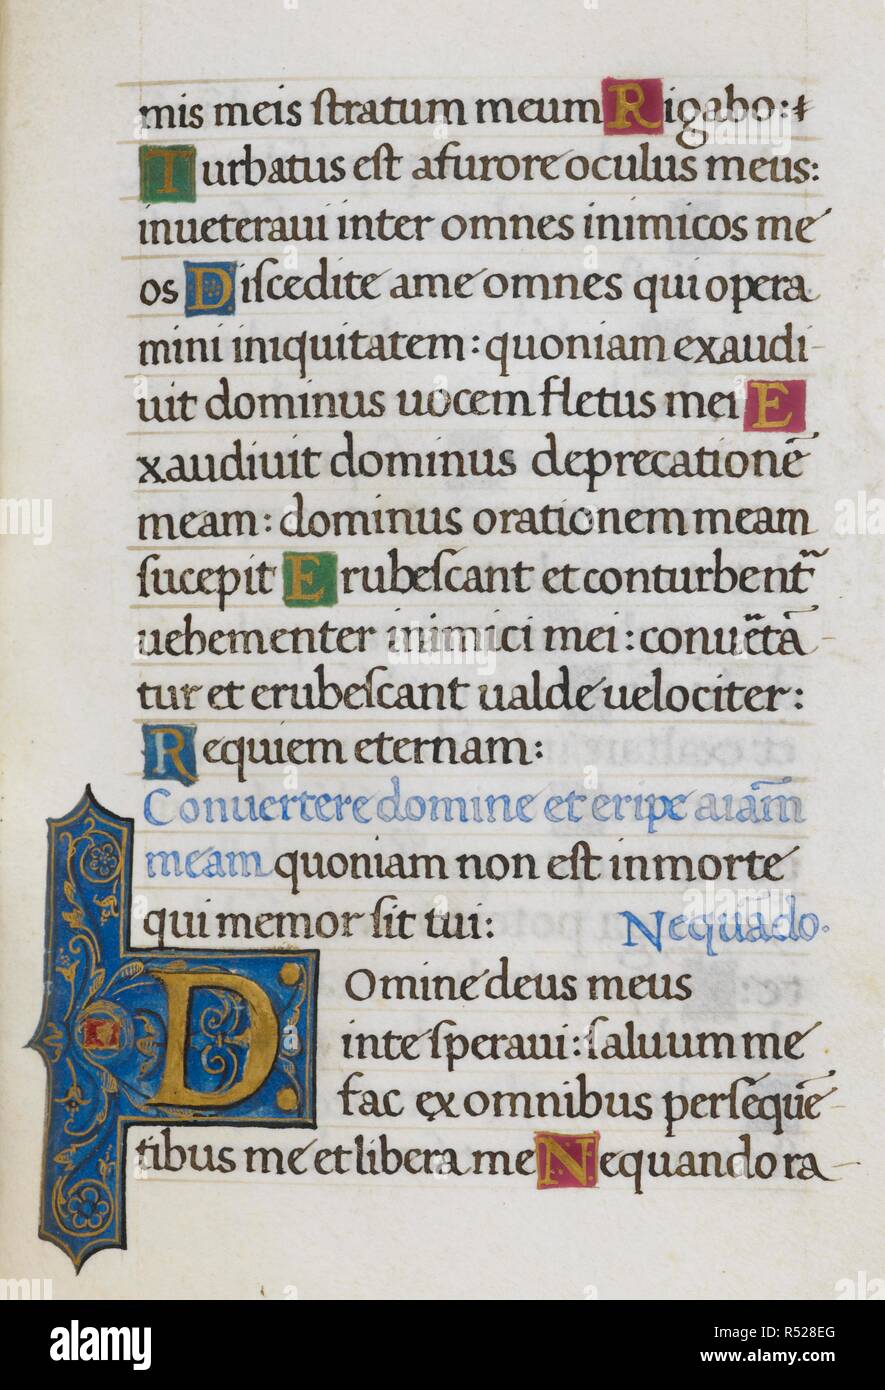 mis meis ſtratum meum Rigabo:
Turbatus eſt afurore oculus meus:
inueteraui inter omnes inimicos me
os Diſcedite ame omnes qui opera
mini iniquitatem: quoniam exaudi-
uit dominus uocem fletus mei E
xaudiuit dominus deprecationē
meam: dominus orationem meam
ſucepit Erubeſcant et conturbent᷉
uehementer inimici mei: conuētā-
tur et erubeſcant ualde uelociter:
Requiem eternam:
Conuertere domine et eripe aiām
meam quoniam non eſt in morte
qui memor ſit tui: Nequādo.
Domine deus meus
in te ſperaui: ſaluum me
fac ex omnibus perſequē-
tibus me et libera me Nequando ra-
alamy
Image ID: R528EG
www.alamy.com